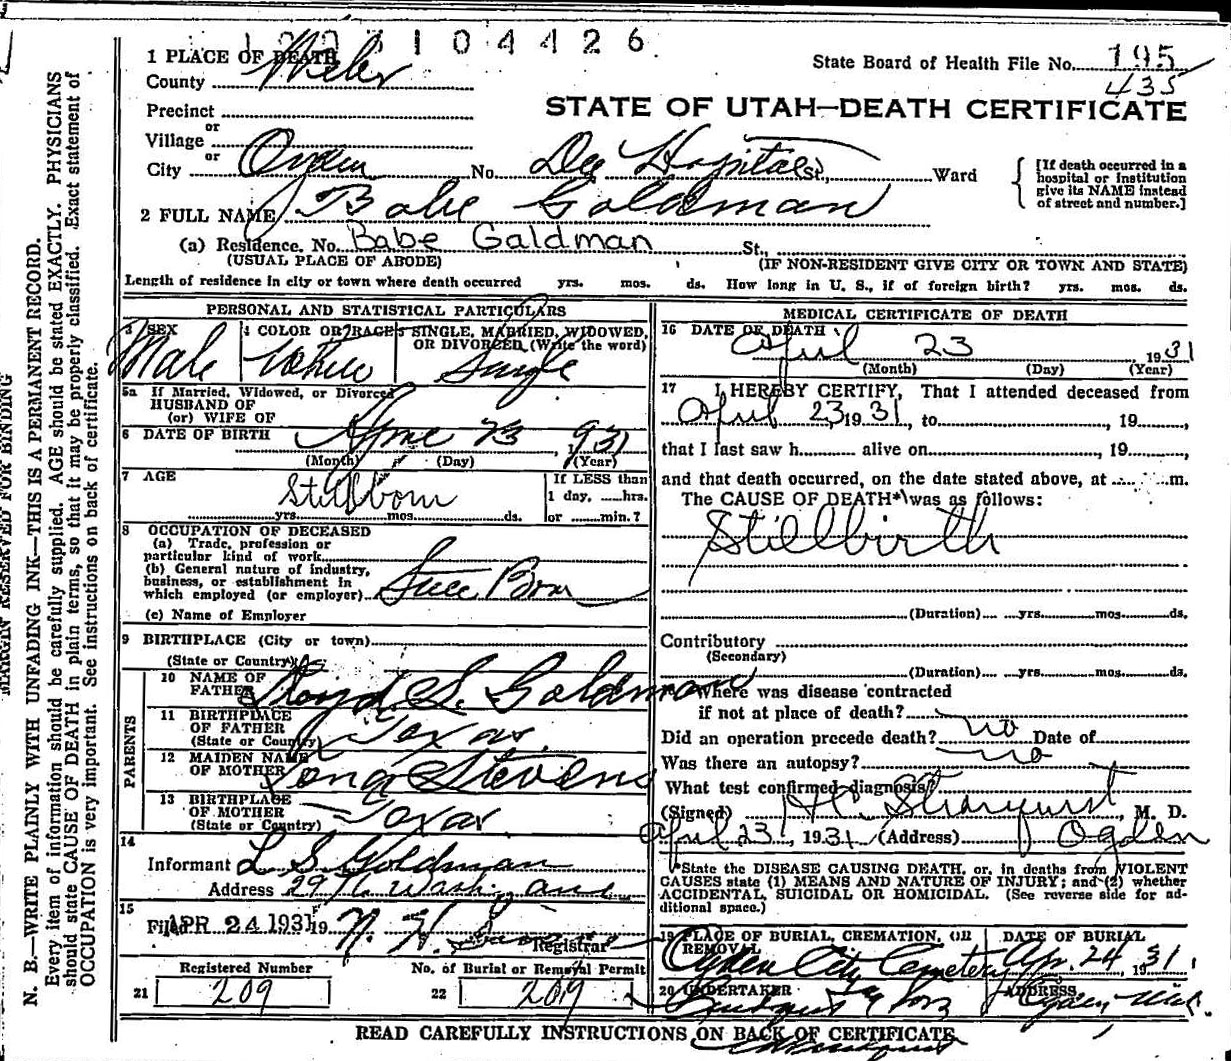 104426
1 PLACE OF DEATH
County Weber
State Board of Health File No. 195
435
STATE OF UTAH—DEATH CERTIFICATE
Precinct
or
Village
or
City Ogden No. Dee Hospital St., Ward
[If death occurred in a hospital or institution give its NAME instead of street and number.]
2 FULL NAME Babe Goldman
(a) Residence. No. Babe Galdman St.,
(USUAL PLACE OF ABODE) (IF NON-RESIDENT GIVE CITY OR TOWN AND STATE)
Length of residence in city or town where death occurred yrs. mos. ds. How long in U. S., if of foreign birth? yrs. mos. ds.
PERSONAL AND STATISTICAL PARTICULARS
3 SEX
Male
4 COLOR OR RACE
White
5 SINGLE, MARRIED, WIDOWED, OR DIVORCED (Write the word)
Single
5a If Married, Widowed, or Divorced
HUSBAND OF
(or) WIFE OF
6 DATE OF BIRTH April 23 1931
(Month) (Day) (Year)
7 AGE
Stillborn
yrs. mos. ds.
If LESS than
1 day, hrs.
or min.?
8 OCCUPATION OF DECEASED
(a) Trade, profession or
particular kind of work
(b) General nature of industry,
business, or establishment in
which employed (or employer)
(c) Name of Employer
9 BIRTHPLACE (City or town)
(State or Country)
PARENTS
10 NAME OF FATHER Lloyd S. Goldman
11 BIRTHPLACE OF FATHER (State or Country) Texas
12 MAIDEN NAME OF MOTHER Stevens
13 BIRTHPLACE OF MOTHER (State or Country) Texas
14
Informant L S Goldman
Address Wash. ave
15
Filed APR 24 1931 19 N. H.
Registrar
Registered Number
21 209
No. of Burial or Removal Permit
22 209
MEDICAL CERTIFICATE OF DEATH
16 DATE OF DEATH
April 23 1931
(Month) (Day) (Year)
17 I HEREBY CERTIFY, That I attended deceased from
April 23 1931, to , 19 ,
that I last saw h alive on , 19 ,
and that death occurred, on the date stated above, at m.
The CAUSE OF DEATH* was as follows:
Stillbirth
(Duration) yrs. mos. ds.
Contributory
(Secondary)
(Duration) yrs. mos. ds.
Where was disease contracted
if not at place of death?
Did an operation precede death? no Date of
Was there an autopsy? no
What test confirmed diagnosis?
(Signed) , M. D.
April 23, 1931 (Address) Ogden
*State the DISEASE CAUSING DEATH, or, in deaths from VIOLENT
CAUSES state (1) MEANS AND NATURE OF INJURY; and (2) whether
ACCIDENTAL, SUICIDAL OR HOMICIDAL. (See reverse side for ad-
ditional space.)
19 PLACE OF BURIAL, CREMATION, OR REMOVAL
Ogden City Cemetery
DATE OF BURIAL
Apr. 24 1931
20 UNDERTAKER
Lindquist & Sons
ADDRESS
Ogden Utah
READ CAREFULLY INSTRUCTIONS ON BACK OF CERTIFICATE
MARGIN RESERVED FOR BINDING
N. B.—WRITE PLAINLY WITH UNFADING INK—THIS IS A PERMANENT RECORD.
Every item of information should be carefully supplied. AGE should be stated EXACTLY. PHYSICIANS
should state CAUSE OF DEATH in plain terms, so that it may be properly classified. Exact statement of
OCCUPATION is very important. See instructions on back of certificate.